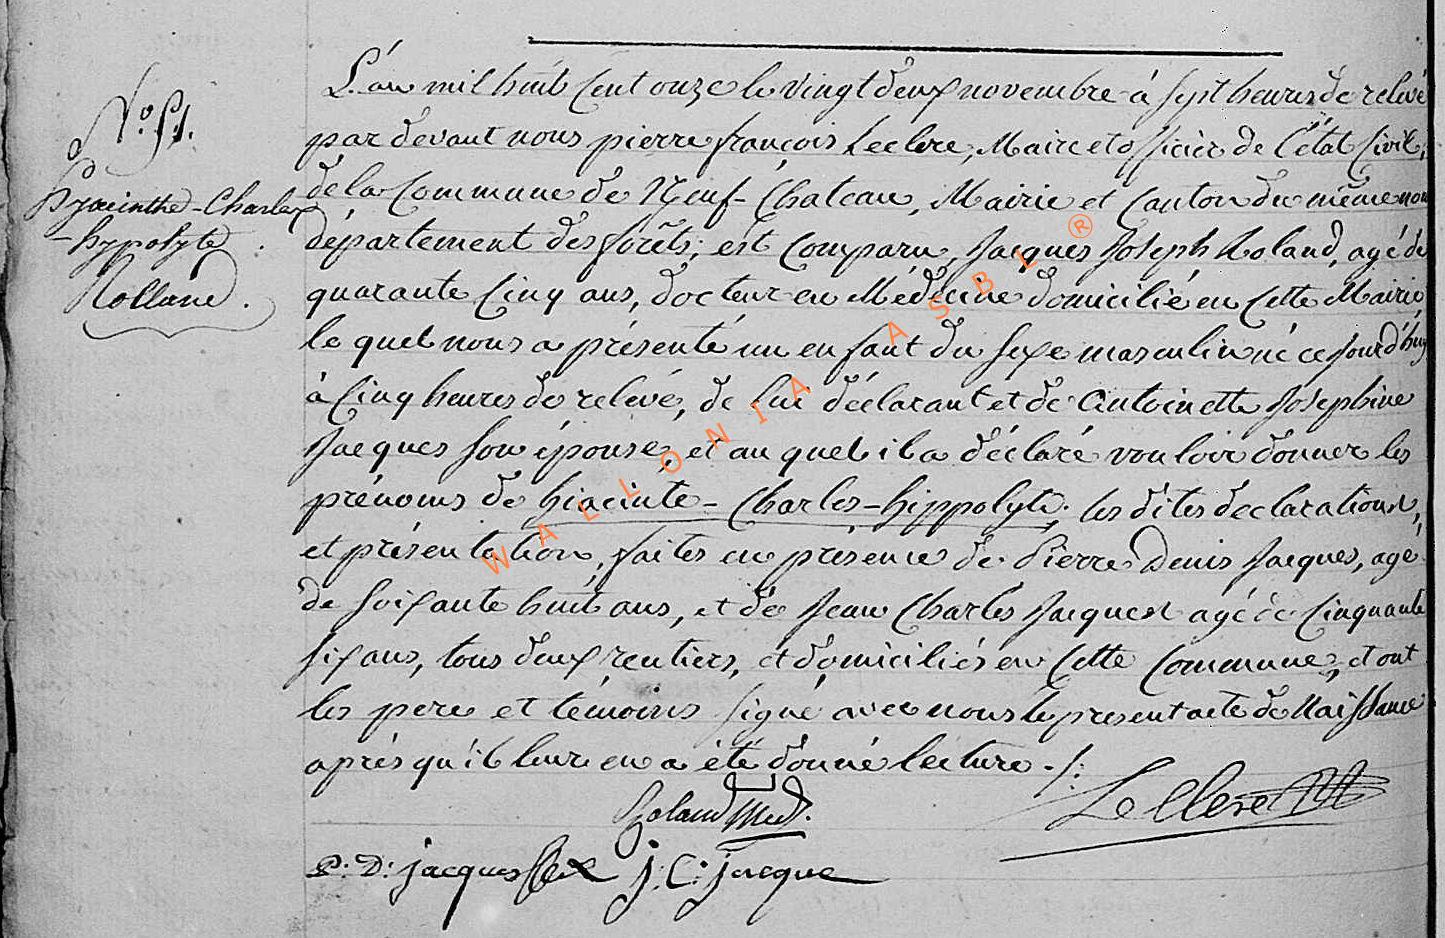 N.º 51.
Hyacinthe-Charles
-hypolyte
Rolland.
L'an mil huit Cent onze le Vingt deux novembre à sept heures de relevé
par devant nous pierre françois Leclere, Maire et officier de L'état Civil,
de la Commune de Neuf-Chateau, Mairie et Canton du même nom
département des forêts; est Comparu, Jacques Joseph Roland, agé de
quarante Cinq ans, docteur en Médécine domicilié en Cette Mairie
le quel nous a présenté un enfant du sexe masculin né ce jourd'huy
à Cinq heures de relevé, de lui déclarant et de Antoinette Josephine
Jacques son épouse, et au quel il a déclaré vouloir donner les
prénoms de hiacinte-Charles-hippolyte. les dites déclarations,
et présentation, faites en présence de Pierre Denis Jacques, agé
de soixante huit ans, et de Jean Charles Jacques agé de Cinquante
six ans, tous deux rentiers, et domiciliés en Cette Commune, et ont
les pere et témoins signé avec nous le present acte de Naissance
après qu'il leur en a été donné lecture ./:
Roland Med. LeClere
P: D: jacques J: C: jacque
WALLONIA ASBL ®